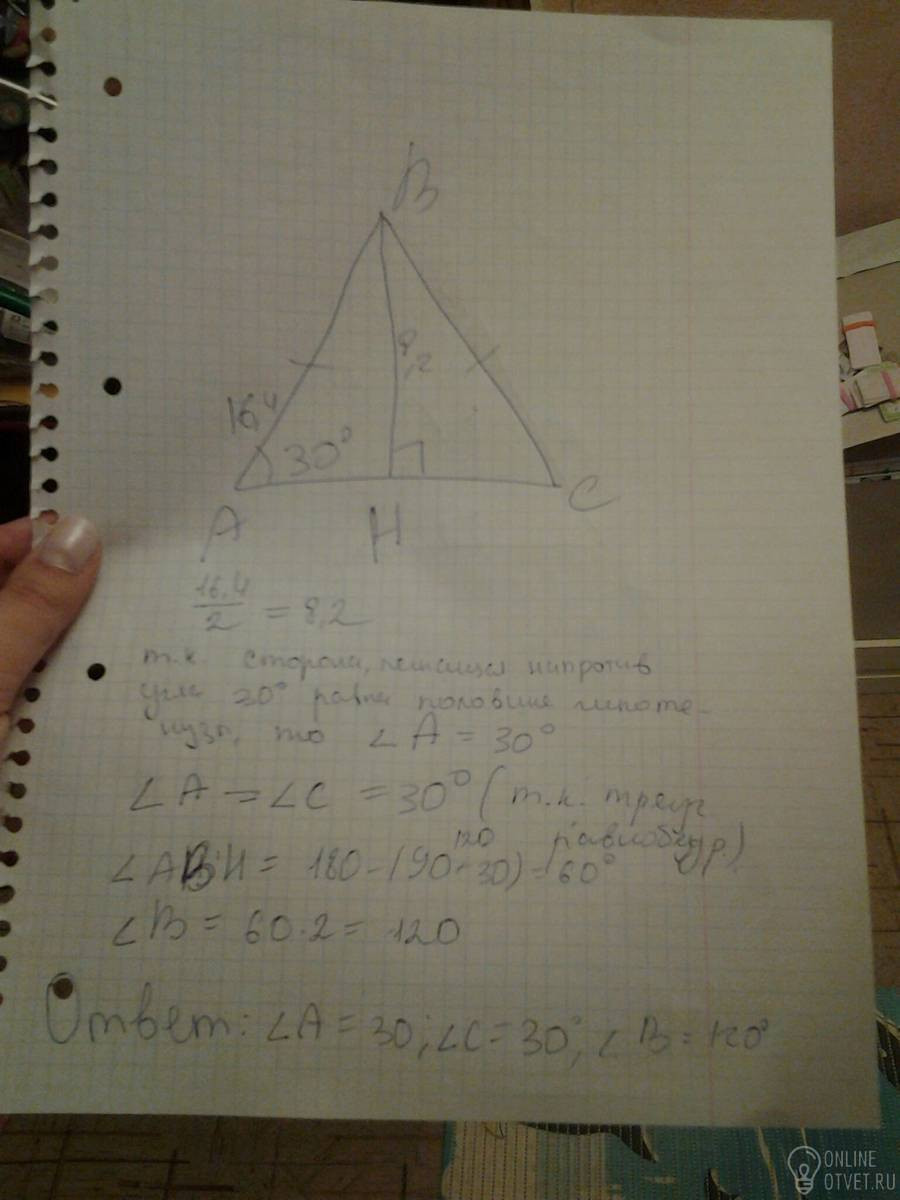 B
8,2
16,4
30°
A
H
C
16,4
2
= 8,2
т.к. сторона, лежащая напротив
угла 30° равна половине гипоте-
нузы, то ∠A = 30°
∠A = ∠C = 30° (т.к. треуг
равнобедр.)
120
∠ABH = 180-(90+30) = 60°
∠B = 60·2 = 120
Ответ: ∠A = 30; ∠C = 30°; ∠B = 120°
ONLINE
OTVET.RU